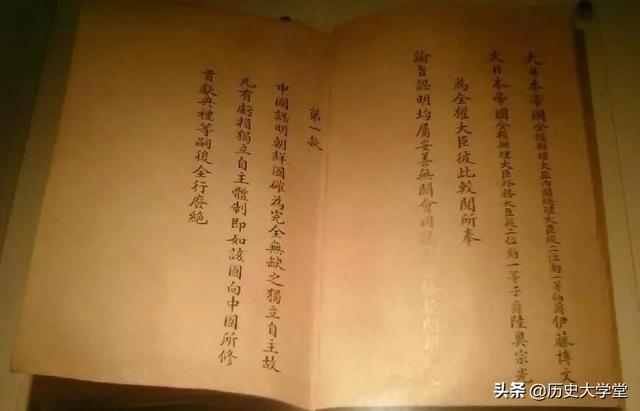 大日本帝國全權辦理大臣內閣總理大臣從二位勳一等伯爵伊藤博文
大日本帝國全權辦理大臣外務大臣從二位勳一等子爵陸奧宗光
為全權大臣彼此較閱所奉
諭旨認明均屬妥善無闕會同條款
第一款
中國認明朝鮮國確為完全無缺之獨立自主故
凡有虧損獨立自主體制即如該國向中國所修
貢獻典禮等嗣後全行廢絕
头条 @历史大学堂